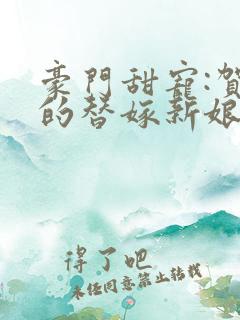 豪門甜寵:賀
的替嫁新娘
得了吧
未經同意禁止轉載